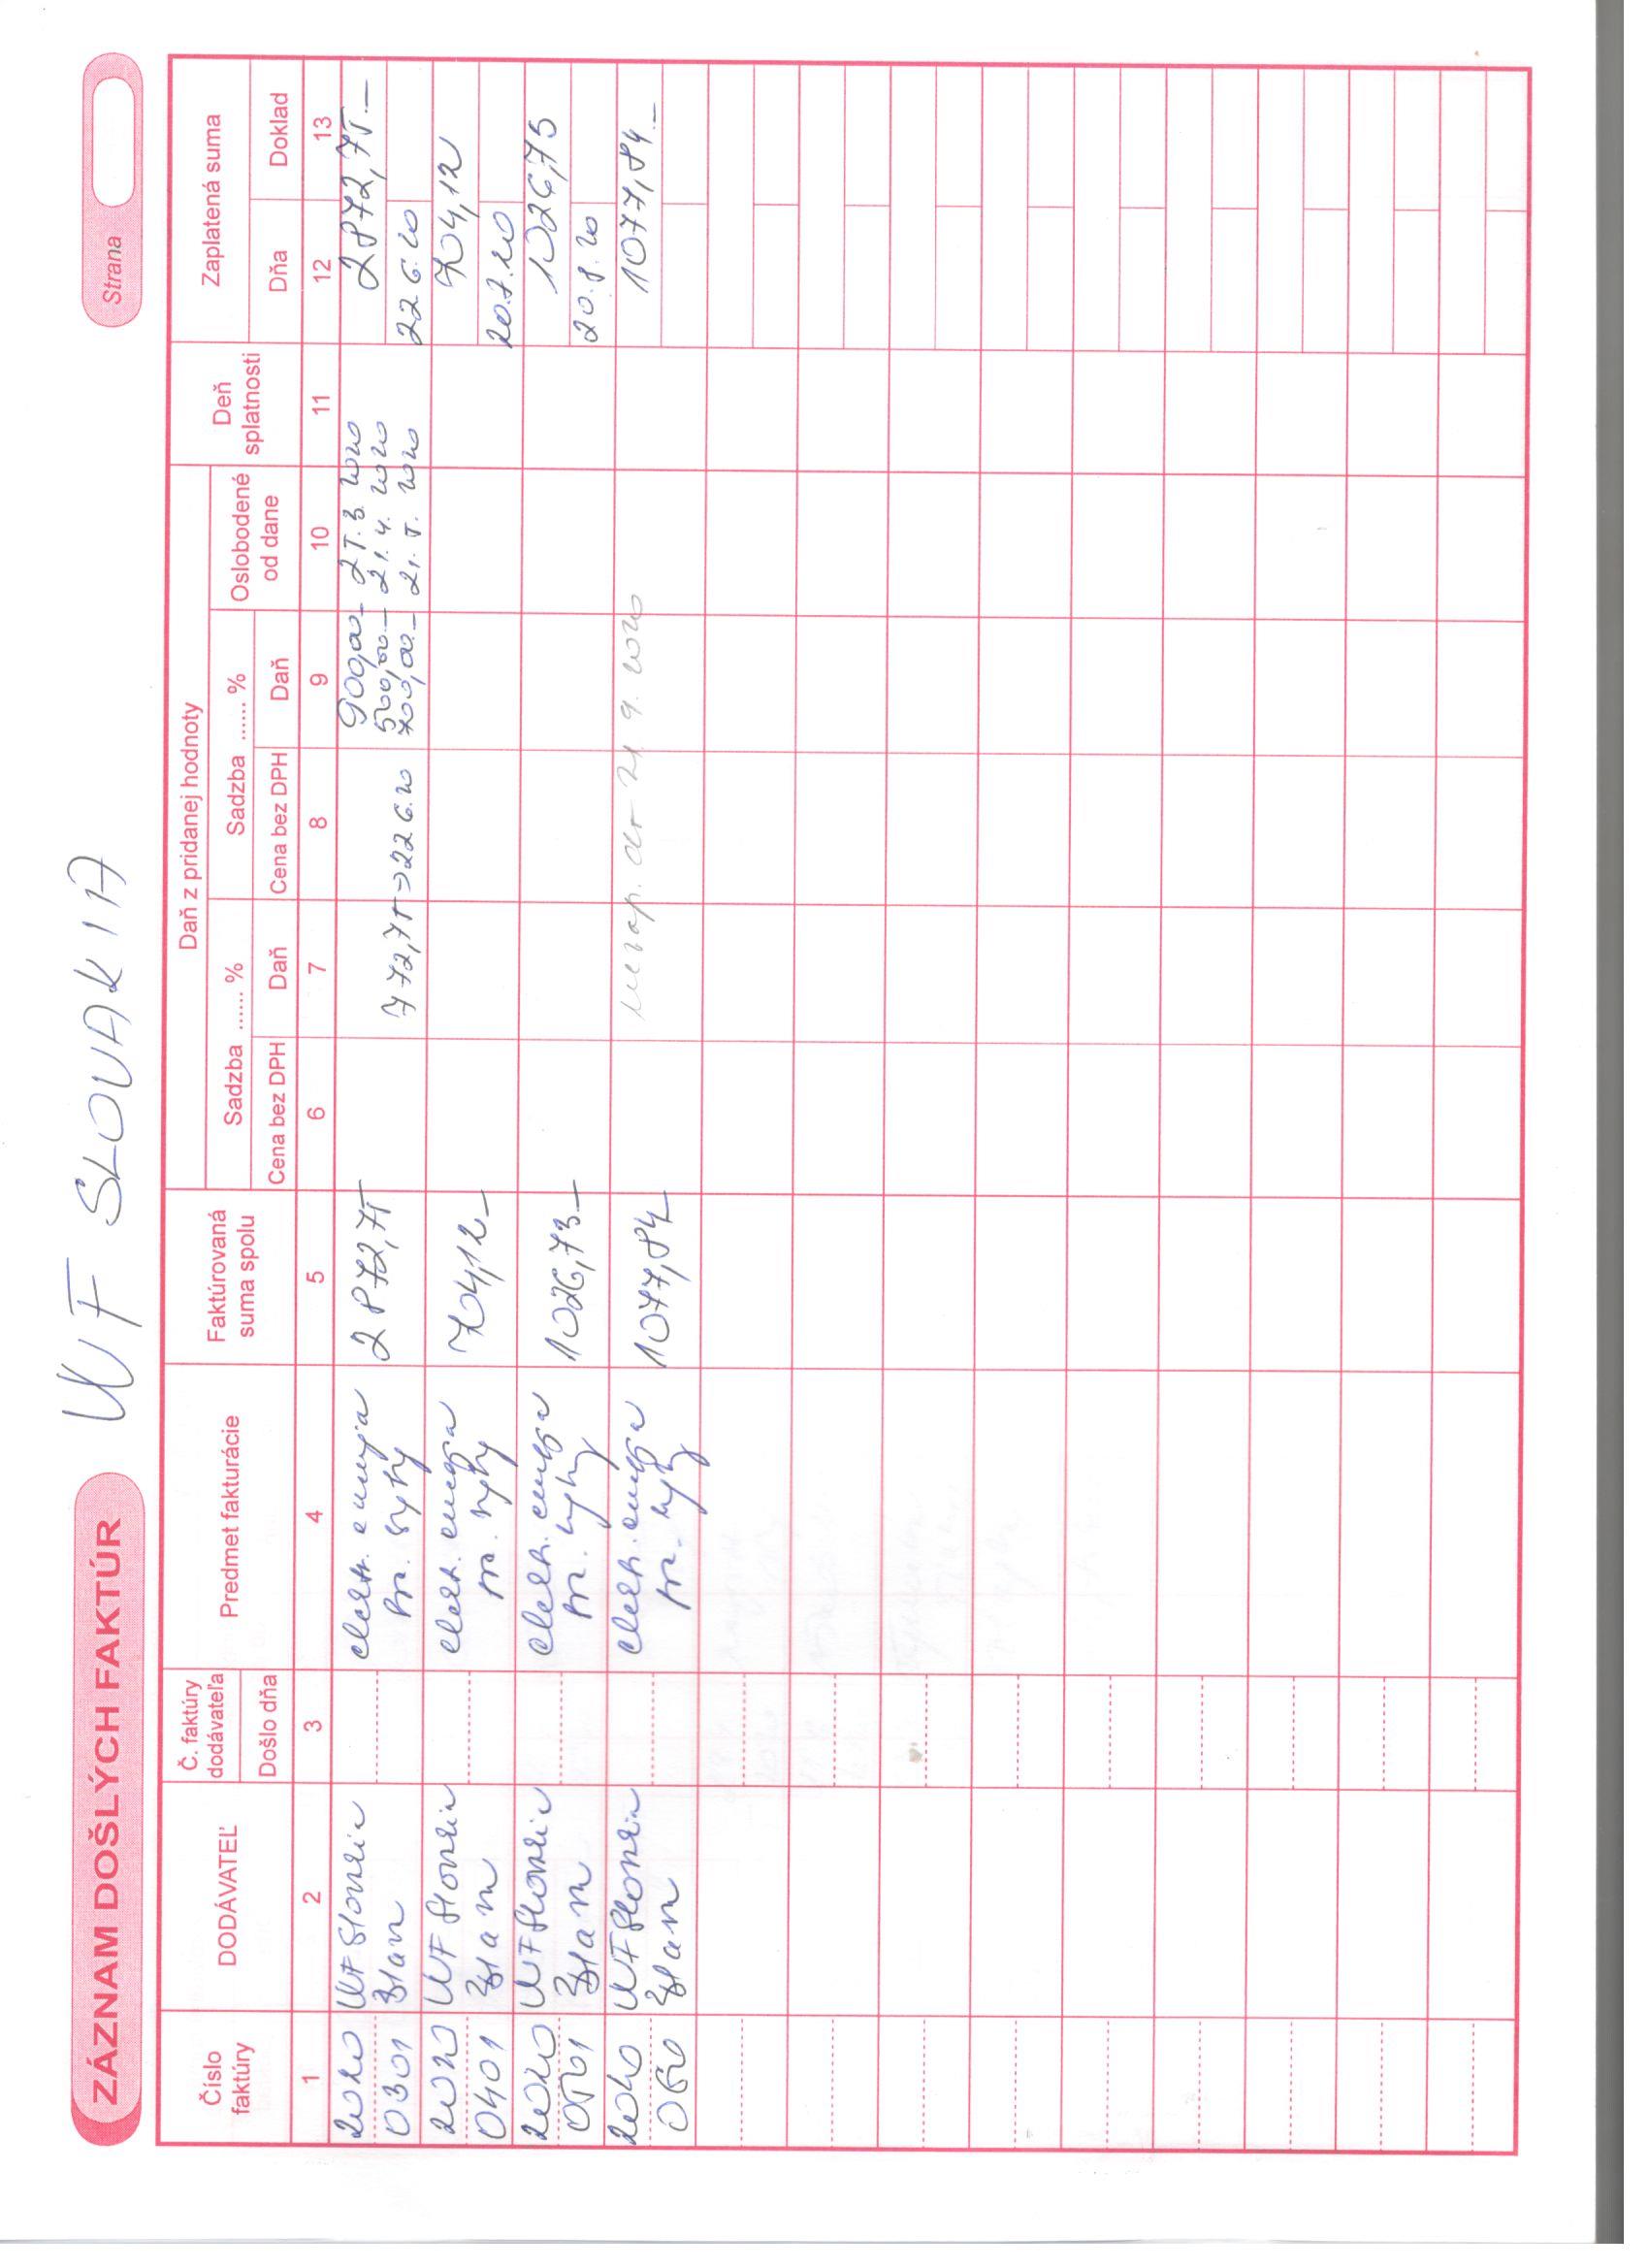 ZÁZNAM DOŠLÝCH FAKTÚR
WF SLOVAKIA
Strana
Číslo faktúry
DODÁVATEĽ
Č. faktúry dodávateľa
Došlo dňa
Predmet fakturácie
Faktúrovaná suma spolu
Daň z pridanej hodnoty
Sadzba ...... %
Cena bez DPH
Daň
Sadzba ...... %
Cena bez DPH
Daň
Oslobodené od dane
Deň splatnosti
Zaplatená suma
Dňa
Doklad
1 2 3 4 5 6 7 8 9 10 11 12 13
2020 WF Slovakia elektr. energia 900,00 25.3. 2020 2872,75.-
500,00.- 21.4. 2020
0301 2872,75 772,75 → 22 6. 20 700,00.- 21. 5. 2020 22 6. 20
2020 WF Slovakia elektr. energia 704,12
0401 704,12.- 20.7.20
2020 WF Slovakia elektr. energia 1026,75
0501 1026,73.- 20.8.20
2020 WF Slovakia elektr. energia 21 9. 2020 1077,84.-
1077,84